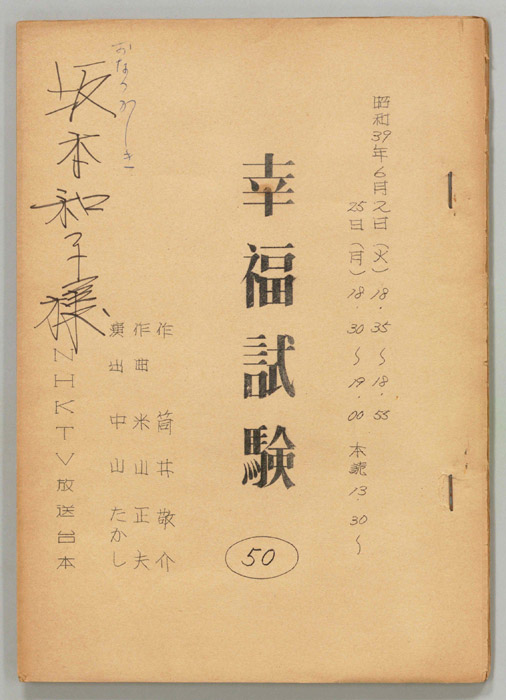 昭和39年6月2日(火) 18.35〜18.55
25日(月) 18.30〜19.00 本読 13.30〜
幸福試験
50
作 筒井敬介
作曲 米山正夫
演出 中山たかし
NHKTV放送台本
坂本和子様